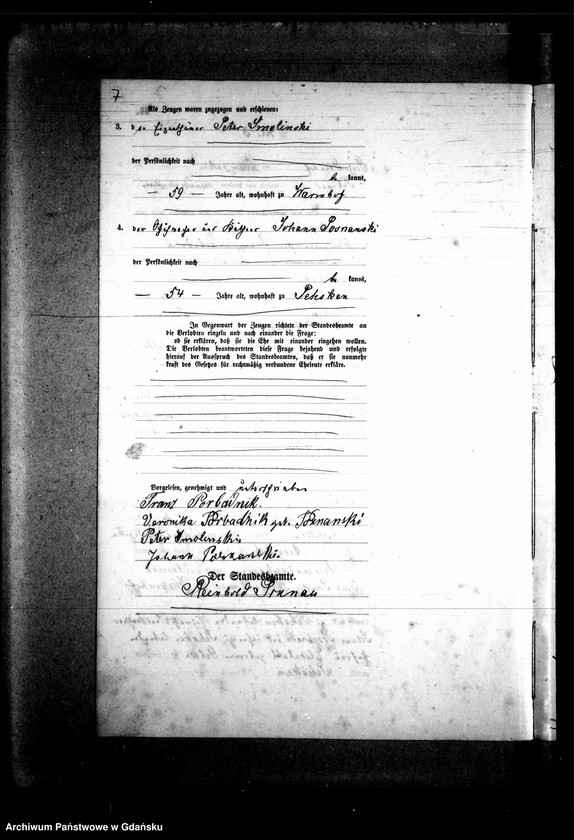 7
Als Zeugen waren zugezogen und erschienen:
3. der Eigenthümer Peter Smolinski
der Persönlichkeit nach
kannt,
59 Jahre alt, wohnhaft zu Warmhof
4. der und Käthner Johann Posnanski
der Persönlichkeit nach
kannt,
54 Jahre alt, wohnhaft zu Pehsken
In Gegenwart der Zeugen richtete der Standesbeamte an
die Verlobten einzeln und nach einander die Frage:
ob sie erklären, daß sie die Ehe mit einander eingehen wollen.
Die Verlobten beantworteten diese Frage bejahend und erfolgte
hierauf der Ausspruch des Standesbeamten, daß er sie nunmehr
kraft des Gesetzes für rechtmäßig verbundene Eheleute erkläre.
Vorgelesen, genehmigt und unterschrieben
Franz Porbadnik.
Veronika Porbadnik geb. Posnanski
Peter Smolenski
Johann Posnanski.
Der Standesbeamte.
Reinhold
Archiwum Państwowe w Gdańsku